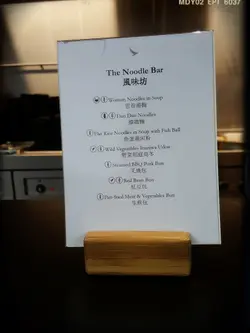 MDY02 EPT 6037
The Noodle Bar
風味坊
Wonton Noodles in Soup
雲吞湯麵
Dan Dan Noodles
擔擔麵
Flat Rice Noodles in Soup with Fish Ball
魚蛋湯河粉
Wild Vegetables Inaniwa Udon
野菜稻庭烏冬
Steamed BBQ Pork Bun
叉燒包
Red Bean Bun
紅豆包
Pan-fried Meat & Vegetables Bun
生煎包